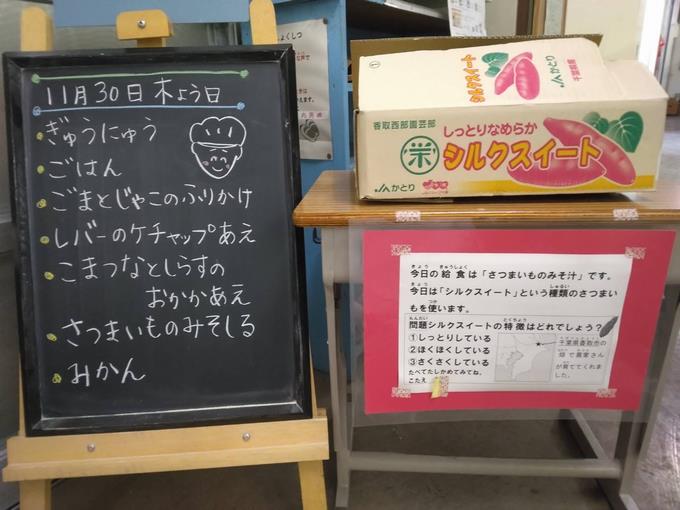 11月30日 木よう日
ぎゅうにゅう
ごはん
ごまとじゃこのふりかけ
レバーのケチャップあえ
こまつなとしらすの
おかかあえ
さつまいものみそしる
みかん
シルクスイート
JAかとり
千葉県産
香取西部園芸部
しっとりなめらか
栄
シルクスイート
JAかとり
きょう きゅうしょく
今日の給食は「さつまいものみそ汁」です。
きょう しゅるい
今日は「シルクスイート」という種類のさつまい
つか
もを使います。
もんだい とくちょう
問題シルクスイートの特徴はどれでしょう?
①しっとりしている
②ほくほくしている
③さくさくしている
たべてたしかめてみてね。
こたえ
千葉県香取市の
畑で農家さん
が育ててくれま
した。